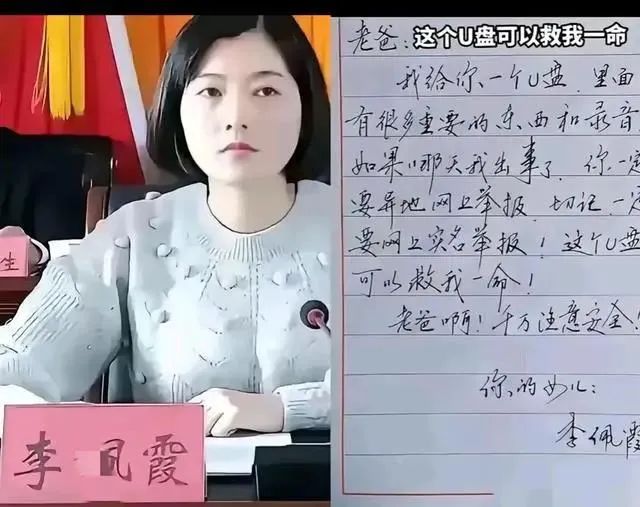 生
李 霞
老爸：这个U盘可以救我一命
我给你一个U盘，里面
有很多重要的东西和录音
如果哪天我出事了，你一定
要异地网上举报，切记，一定
要网上实名举报！这个U盘
可以救我一命！
老爸啊！千万注意安全！
你的女儿：
李佩霞